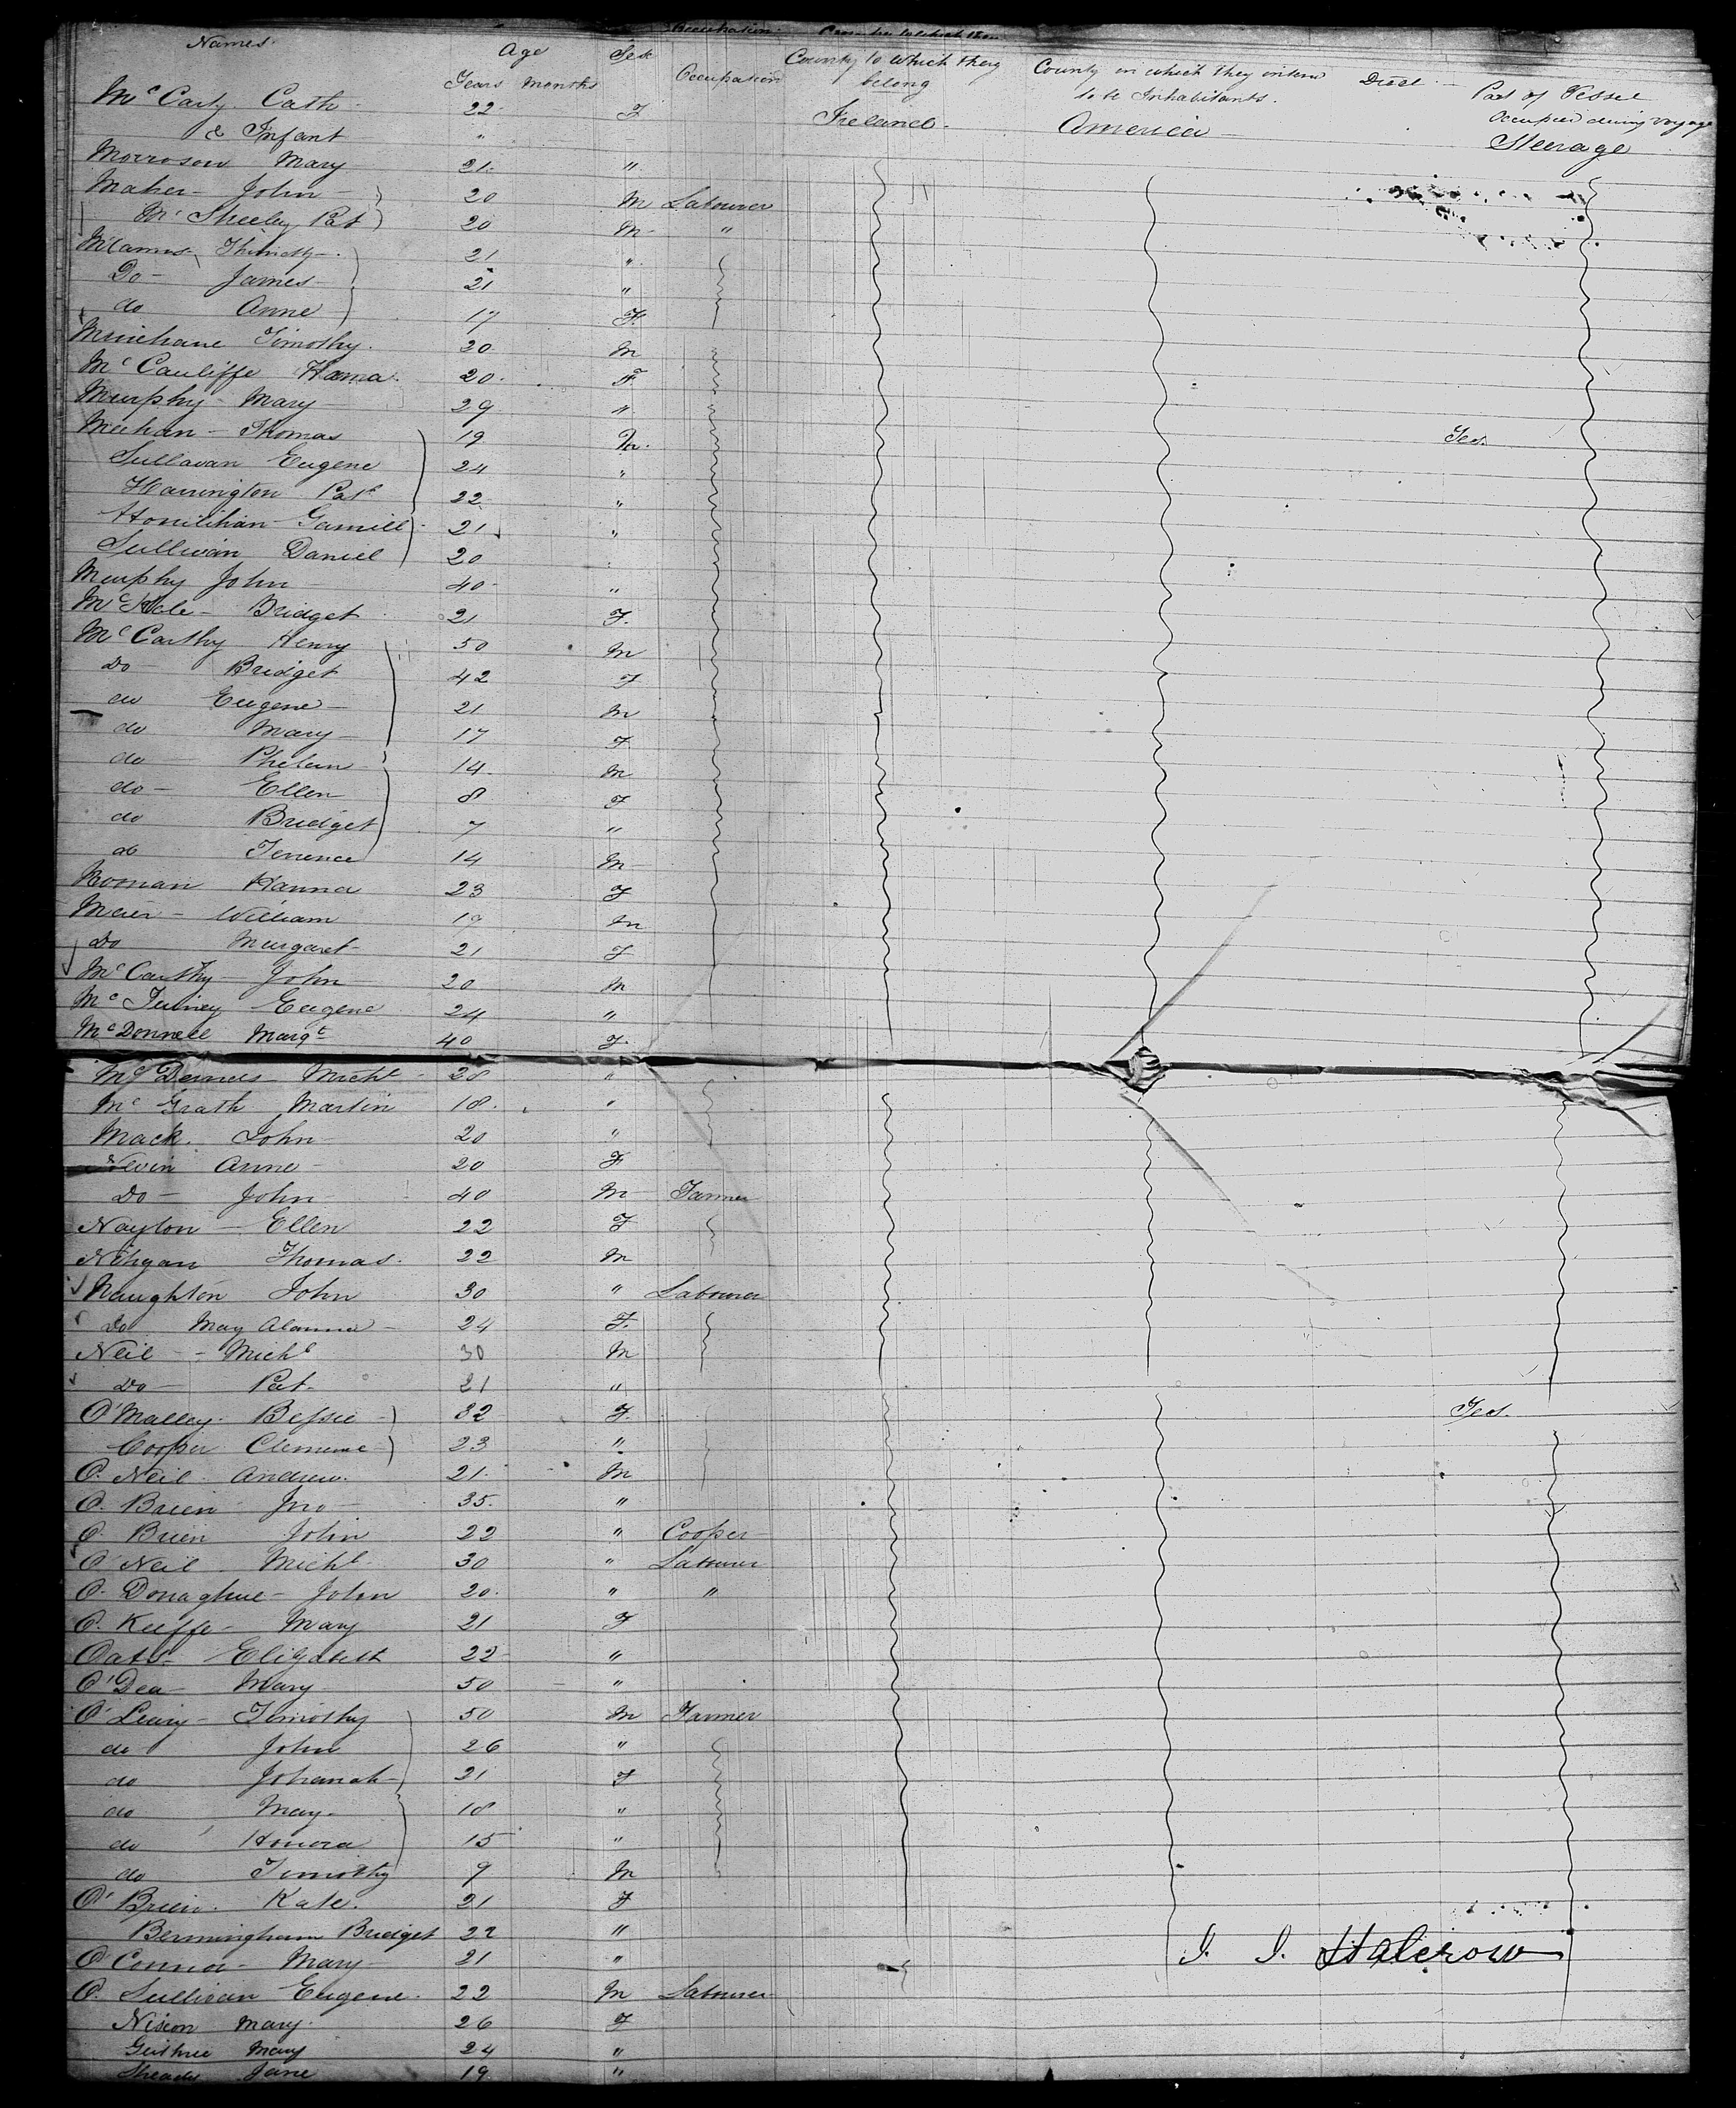 Names. Age Sex Occupation County to which they belong County in which they intend to be Inhabitants. Died Part of Vessel occupied during voyage
Years Months
McCarty Cath 22 F Ireland. America Steerage
& Infant "
Morroson Mary 21 "
Maher John 20 M Labourer
Mc Sheehy Pat 20 M "
Timothy 21 "
Do James 21 "
do Anne 17 F.
Minihane Timothy. 20 M
McCauliffe Hanna. 20. F
Murphy Mary 29 "
Meehan Thomas 19 M. Yes.
Sullavan Eugene 24 "
Harrington Patk 22 "
Hourihan 21 "
Sullivan Daniel 20
Murphy John 40 "
McHale Bridget 21 F.
McCarthy Henry 50 M
Do Bridget 42 F
do Eugene 21 M
do Mary 17 F
do Phelan 14. M
do Ellen 8 F
do Bridget 7 "
do Terrence 14 M
Noonan Hanna 23 F
Meier William 19 M
Do Margaret 21 F
McCarthy John 20 M
Mc Eugene 24 "
McDonnell Margt 40 F.
Michl 28 "
Mc Grath Martin 18. "
Mack. John 20 "
Nevin Anne 20 F
Do John 40 M Farmer
Naylon Ellen 22 F
Nihgan Thomas. 22 M
Naughton John 30 " Labourer
Do May Alanna 24 F.
Neil Michl 30 M
Do Pat. 21 "
O'Malley. Bessie 32 F. Yes.
Cooper Clemene 23 "
O. Neil Andrew. 21. M
O. Brien Jno 35. "
O. Brien John 22 " Cooper
O'Neil Michl 30 " Labourer
O. Donaghue John 20. " "
O. Keeffe Mary 21 F
Oats Elizabeth 22 "
O'Dea Mary 50 "
O'Leary Timothy 50 M Farmer
do John 26 "
do Johanah 21 F
do May. 18 "
do Honora 15 "
do Timothy 9 M
O'Brien. Kate. 21 F
Bermingham Bridget 22 "
O'Connor Mary 21 " J. J. Halcrow
O. Sullivan Eugene. 22 M Labourer
Nixon Mary. 26 F
Guthrie Mary 24 "
Jane 19 "